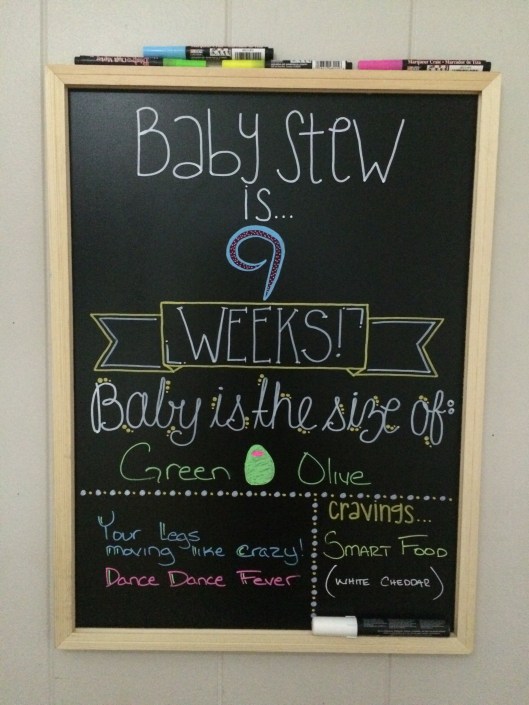 Baby Stew
is...
9
WEEKS!
Baby is the size of:
Green Olive
Your Legs
moving like crazy!
Dance Dance Fever
cravings...
SMART FOOD
(WHITE CHEDDAR)